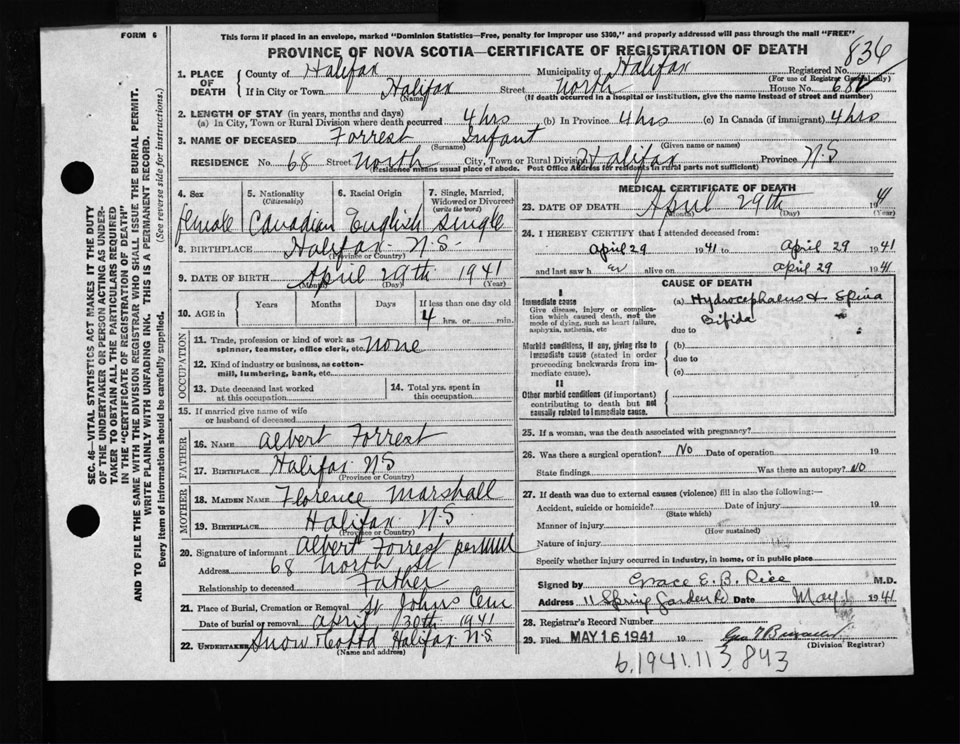 FORM 6
This form if placed in an envelope, marked "Dominion Statistics—Free, penalty for improper use $300," and properly addressed will pass through the mail "FREE"
PROVINCE OF NOVA SCOTIA—CERTIFICATE OF REGISTRATION OF DEATH
836
1. PLACE OF DEATH
County of Halifax Municipality of Halifax Registered No.
(For use of Registrar General only)
If in City or Town Halifax Street North House No. 68
(Name) (If death occurred in a hospital or institution, give the name instead of street and number)
2. LENGTH OF STAY (in years, months and days)
(a) In City, Town or Rural Division where death occurred 4 hrs (b) In Province 4 hrs (c) In Canada (if immigrant) 4 hrs
3. NAME OF DECEASED Forrest Infant
(Surname) (Given name or names)
RESIDENCE No. 68 Street North City, Town or Rural Division Halifax Province N.S
(Residence means usual place of abode. Post Office Address for residents in rural parts not sufficient)
4. Sex female
5. Nationality (Citizenship) Canadian
6. Racial Origin English
7. Single, Married, Widowed or Divorced (write the word) Single
8. BIRTHPLACE Halifax N.S.
(Province or Country)
9. DATE OF BIRTH April 29th 1941
(Month) (Day) (Year)
10. AGE in Years Months Days If less than one day old
4 hrs. or min.
OCCUPATION
11. Trade, profession or kind of work as spinner, teamster, office clerk, etc. none
12. Kind of industry or business, as cotton-mill, lumbering, bank, etc.
13. Date deceased last worked at this occupation
14. Total yrs. spent in this occupation
15. If married give name of wife or husband of deceased
FATHER
16. NAME Albert Forrest
17. BIRTHPLACE Halifax N S
(Province or Country)
MOTHER
18. MAIDEN NAME Florence Marshall
19. BIRTHPLACE Halifax N.S
(Province or Country)
20. Signature of informant Albert Forrest per
Address 68 North St
Relationship to deceased Father
21. Place of Burial, Cremation or Removal St Johns Cem
Date of burial or removal April 30th 1941
22. UNDERTAKER Snow & Co Ltd Halifax N.S
(Name and address)
MEDICAL CERTIFICATE OF DEATH
23. DATE OF DEATH April 29th 41
(Month) (Day) (Year)
24. I HEREBY CERTIFY that I attended deceased from:
April 29 1941 to April 29 1941
and last saw h er alive on April 29 1941
CAUSE OF DEATH
I
Immediate cause
Give disease, injury or complication which caused death, not the mode of dying, such as heart failure, asphyxia, asthenia, etc
(a) Hydrocephalus & Spina Bifida
due to
Morbid conditions, if any, giving rise to immediate cause (stated in order proceeding backwards from immediate cause).
(b)
due to
(c)
II
Other morbid conditions (if important) contributing to death but not causally related to immediate cause.
25. If a woman, was the death associated with pregnancy?
26. Was there a surgical operation? No Date of operation 19
State findings Was there an autopsy? No
27. If death was due to external causes (violence) fill in also the following:—
Accident, suicide or homicide? Date of injury 19
(State which)
Manner of injury
(How sustained)
Nature of injury
Specify whether injury occurred in industry, in home, or in public place
Signed by Grace E. B. Rice M.D.
Address 11 Spring Garden Rd Date May 1941
28. Registrar's Record Number
29. Filed MAY 16 1941 19
(Division Registrar)
b.1941.113.843
SEC. 46—VITAL STATISTICS ACT MAKES IT THE DUTY
OF THE UNDERTAKER OR PERSON ACTING AS UNDER-
TAKER TO OBTAIN ALL THE PARTICULARS REQUIRED
IN THE "CERTIFICATE OF REGISTRATION OF DEATH"
AND TO FILE THE SAME WITH THE DIVISION REGISTRAR WHO SHALL ISSUE THE BURIAL PERMIT.
WRITE PLAINLY WITH UNFADING INK. THIS IS A PERMANENT RECORD.
Every item of information should be carefully supplied. (See reverse side for instructions.)